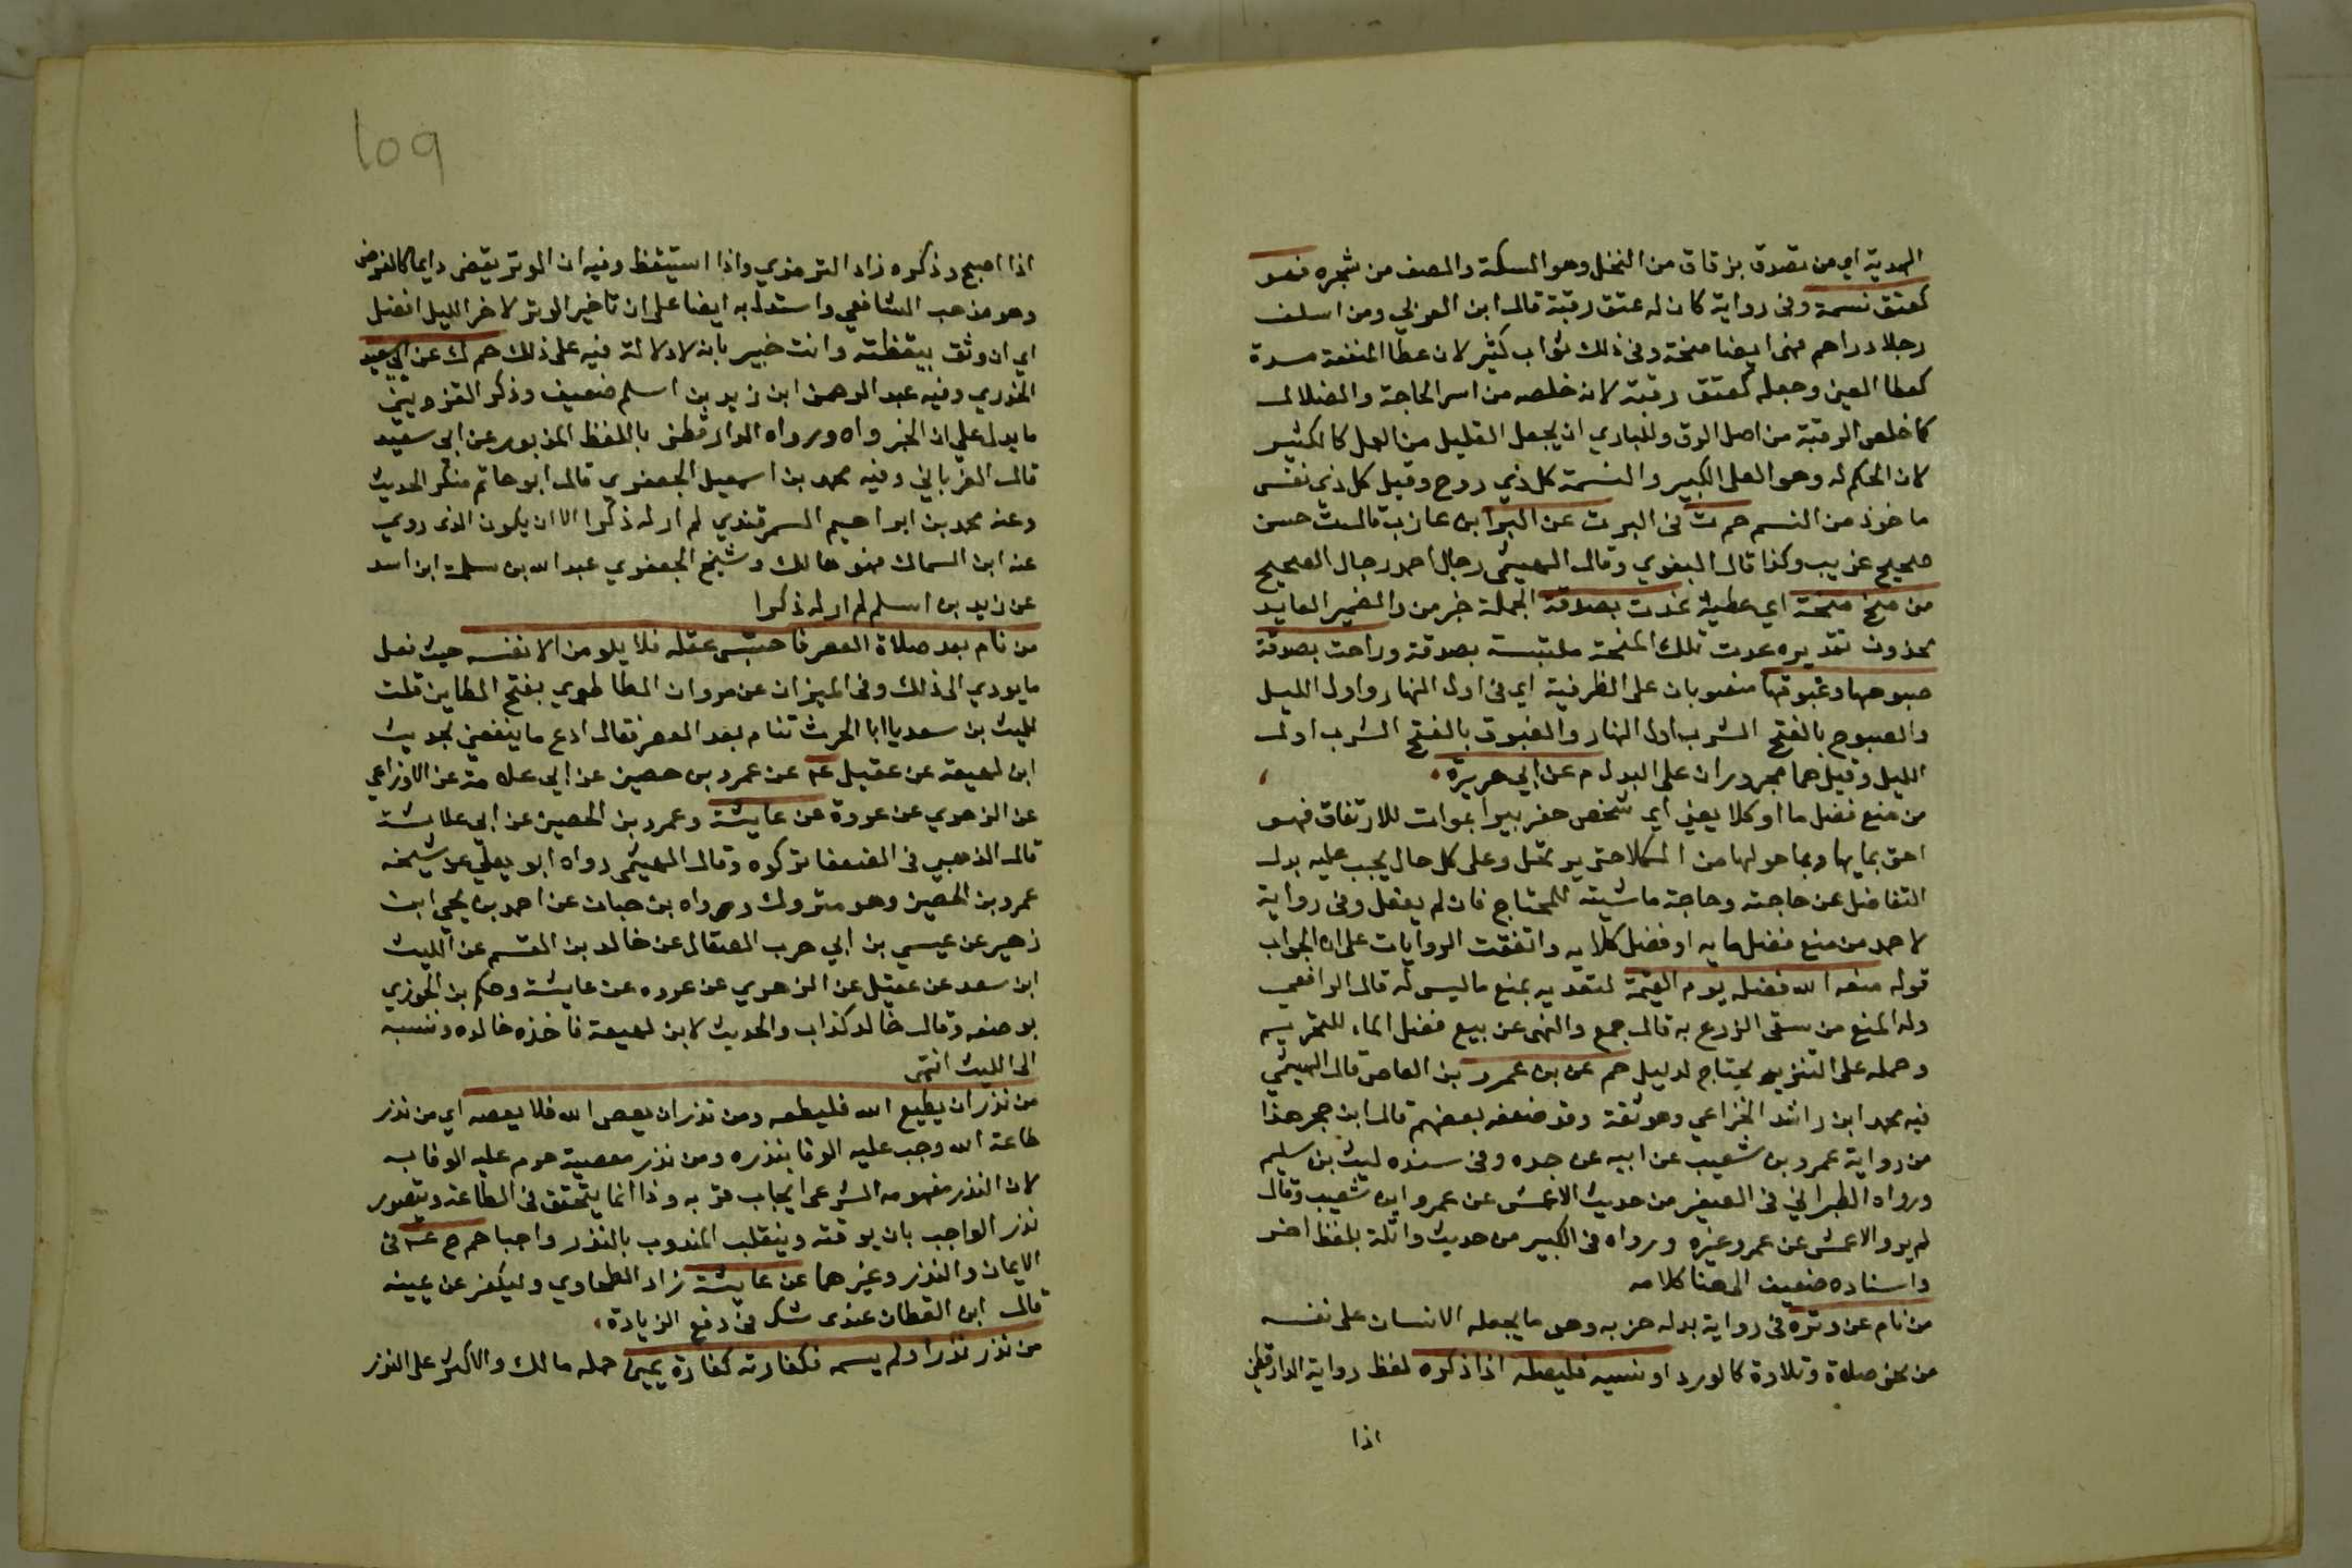 الهدية اي من تصدق بزقاق من النخل وهو السكة والصف من شجره فهو
كعتق نسمة وفى رواية كان له عتق رقبة قال ابن العربي ومن اسلف
رجلا دراهم فهى ايضا منحة وفى ذلك ثواب كثير لان عطا المنفعة مدة
كعطا العين وجعله كعتق رقبة لانه خلصه من اسر الحاجة والضلال
كما خلص الرقبة من اصل الرق وللباري ان يجعل القليل من العمل كالكثير
لان الحكم له وهو العلى الكبير والنسمة كل ذي روح وقيل كل ذي نفس
ماخوذ من النسم حم ت فى البر ت عن البرا بن عازب قال ت حسن
صحيح غريب وكذا قال البغوي وقال الهيثمى رجال احمد رجال الصحيح
من منح منحة اي عطية غدت بصدقة الجملة خبر من والضمير العايد
محذوف تقديره غدت تلك المنحة ملتبسة بصدقة وراحت بصدقة
صبوحها وغبوقها منصوبان على الظرفية اي فى اول النهار واول الليل
والصبوح بالفتح الشرب اول النهار والغبوق بالفتح الشرب اول
الليل وقيل هما مجروران على البدل م عن ابي هريرة
من منع فضل ما او كلا يعني اي شخص حفر بيرا بموات للارتفاق فهو
احق بمايها وبما حولها من الكلا حتى يرتحل وعلى كل حال يجب عليه بذل
التفاضل عن حاجته وحاجة ماشيته للمحتاج فان لم يفعل وفى رواية
لاحمد من منع فضل مايه او فضل كلايه واتفقت الروايات على ان الجواب
قوله منعه الله فضله يوم القيمة لتعديه بمنع ما ليس له قال الرافعى
وله المنع من سقى الزرع به قال جمع والنهى عن بيع فضل الماء للتحريم
وحمله على التنزيه يحتاج لدليل حم عن بن عمرو بن العاص قال الهيثمي
فيه محمد ابن راشد الخزاعي وهو ثقة وقد ضعفه بعضهم قال ابن حجر هذا
من رواية عمرو بن شعيب عن ابيه عن جده وفى سنده ليث بن سليم
ورواه الطبراني فى الصغير من حديث الاعمش عن عمرو ابن شعيب وقال
لم يرو الاعمش عن عمرو غيره ورواه فى الكبير من حديث واثلة بلفظ اخر
واسناده ضعيف الى هنا كلامه
من نام عن وتره فى رواية بدله حزبه وهو ما يجعله الانسان على نفسه
من نحو صلاة وتلاوة كالورد او نسيه فليصله اذا ذكره لفظ رواية الدارقطني
اذا
109
اذا اصبح وذكره زاد الترمذي واذا استيقظ وفيه ان الوتر يقضى دايما كالفرض
وهو مذهب الشافعي واستدل به ايضا على ان تاخير الوتر لاخر الليل افضل
اي ان وثق بيقظته وانت خبير بانه لا دلالة فيه على ذلك حم ك عن ابي سعيد
الخدري وفيه عبد الرحمن ابن زيد بن اسلم ضعيف وذكر القزويني
ما يدل على ان الخبر واه ورواه الدارقطنى باللفظ المزبور عن ابى سعيد
قال الغرياني وفيه محمد بن اسمعيل الجعفري قال ابو حاتم منكر الحديث
وعنه محمد بن ابراهيم السمرقندي لم ار له ذكرا الا ان يكون الذى روى
عنه ابن السماك فهو هالك وشيخ الجعفري عبد الله بن سلمة ابن اسد
عن زيد بن اسلم لم ار له ذكرا
من نام بعد صلاة العصر فاختلس عقله فلا يلومن الا نفسه حيث فعل
ما يودي الى ذلك وفى الميزان عن مروان الطاطري بفتح الطاين قلت
لليث بن سعد يا ابا الحرث تنام بعد العصر فقال ادع ما ينفعني لحديث
ابن لهيعة عن عقيل ع عن عمرو بن حصين عن ابي علاثة عن الاوزاعي
عن الزهري عن عروة عن عايشة وعمرو بن الحصين عن ابي علاثة
قال الذهبي فى الضعفا تركوه وقال الهيثمى رواه ابو يعلي عن شيخه
عمرو بن الحصين وهو متروك ورواه بن حبان عن احمد بن يحي ابن
زهير عن عيسي بن ابي حرب الصفال عن خالد بن القسم عن الليث
ابن سعد عن عقيل عن الزهري عن عروه عن عايشة وحكم بن الجوزي
بوضعه وقال خالد كذاب والحديث لابن لهيعة فاخذه خالد ونسبه
الى الليث انتهى
من نذر ان يطيع الله فليطعه ومن نذر ان يعص الله فلا يعصه اي من نذر
طاعة الله وجب عليه الوفا بنذره ومن نذر معصية حرم عليه الوفا به
لان النذر مفهومه الشرعى ايجاب قربه وذا انما يتحقق فى الطاعة ويتصور
نذر الواجب بان يوقته وينقلب المندوب بالنذر واجبا حم خ ع فى
الايمان والنذر وغيرهما عن عايشة زاد الطحاوي وليكفر عن يمينه
قال ابن القطان عندى شك فى رفع الزيادة
من نذر نذرا ولم يسمه فكفارته كفارة يمين حمله مالك والاكثر على النذر